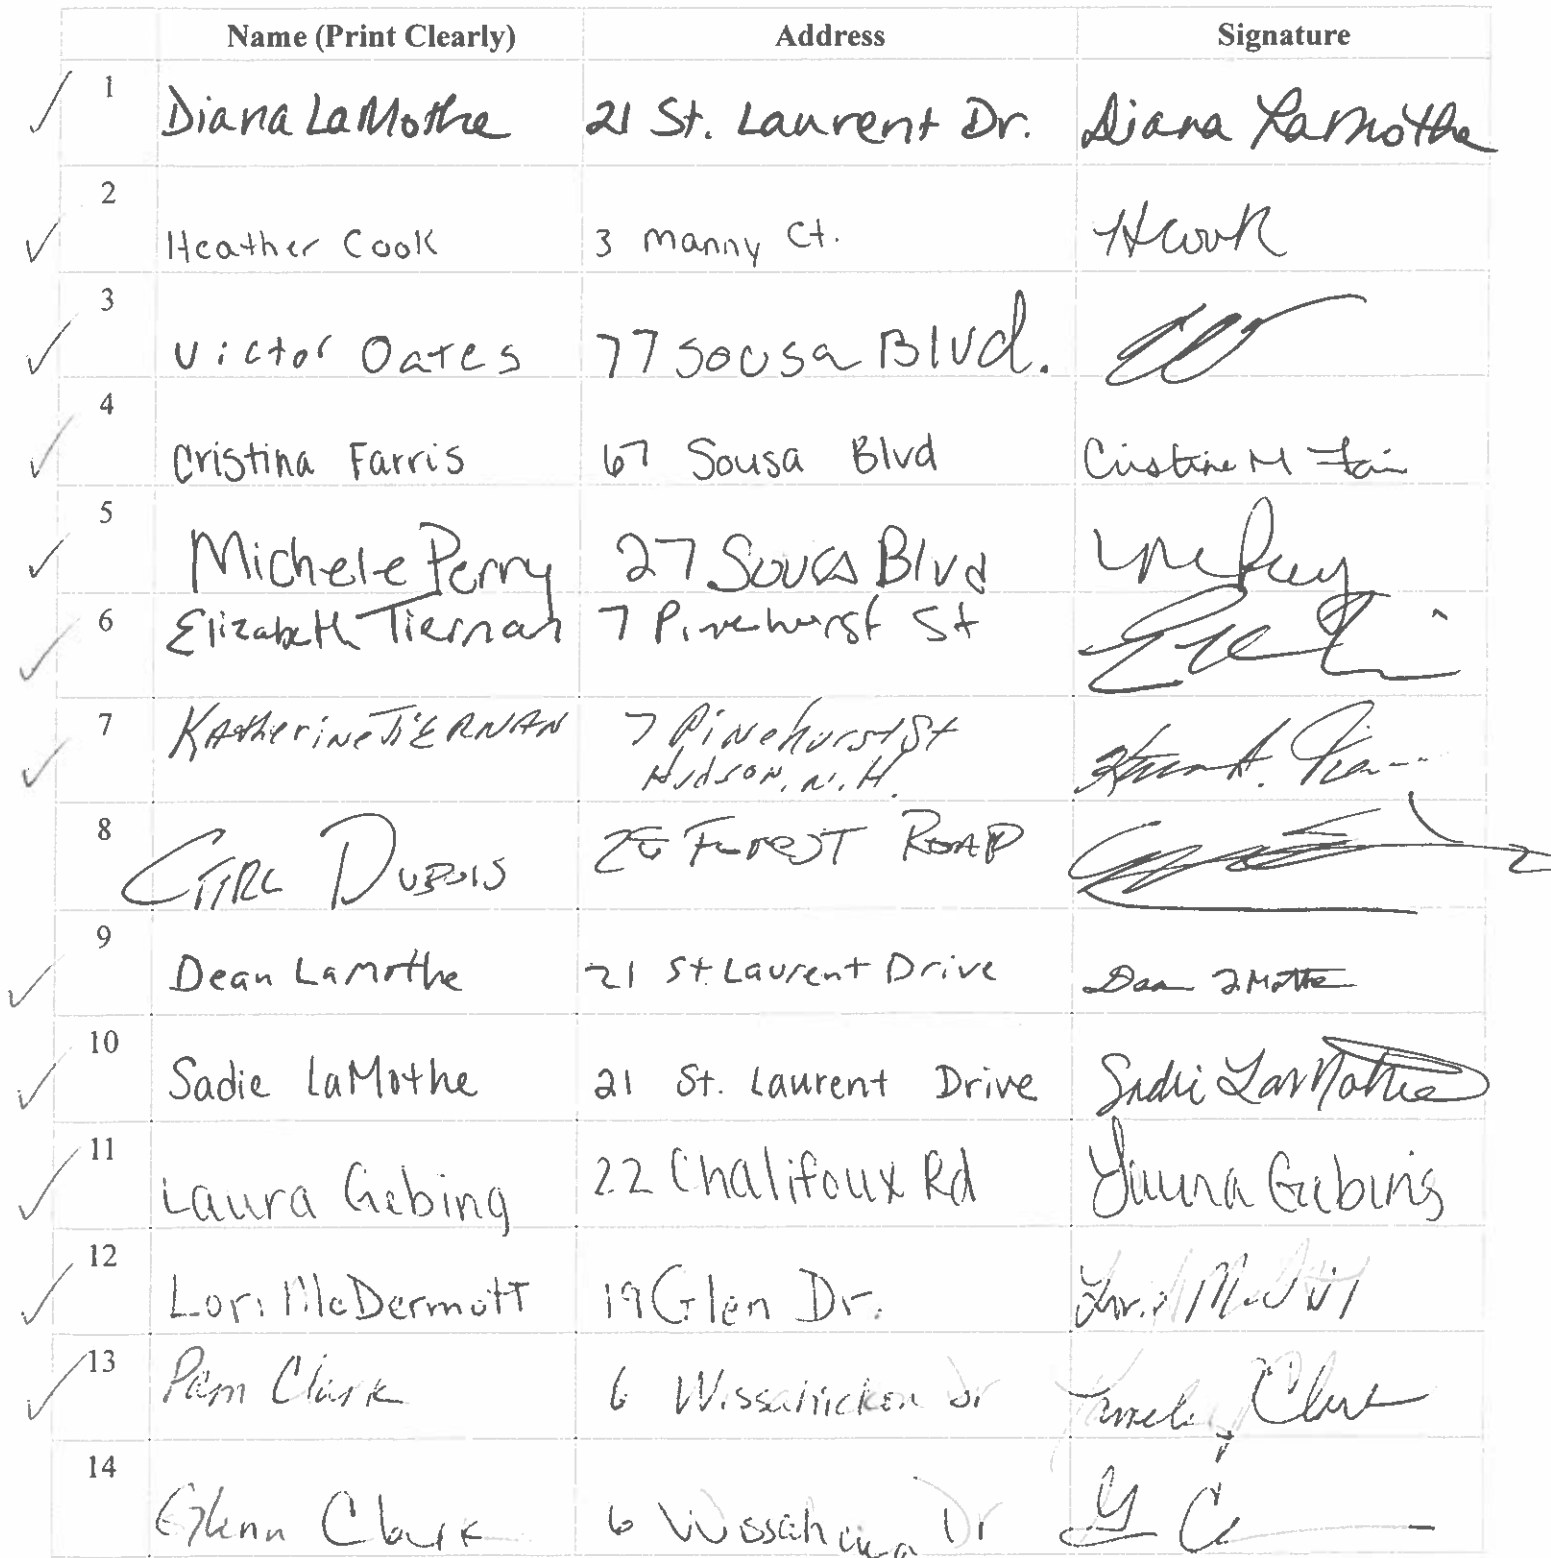 Name (Print Clearly) Address Signature
1 Diana LaMothe 21 St. Laurent Dr. Diana LaMothe
2 Heather Cook 3 Manny Ct. H Cook
3 Victor Oates 77 Sousa Blvd.
4 Cristina Farris 67 Sousa Blvd Cristina M
5 Michele Perry 27 Sousa Blvd
6 Elizabeth Tiernan 7 Pinehurst St
7 Katherine TiERNAN 7 Pinehurst St
Hudson, N.H.
8 DUBUIS FOREST ROAD
9 Dean LaMothe 21 St. Laurent Drive Dean LaMothe
10 Sadie LaMothe 21 St. Laurent Drive Sadie LaMothe
11 Laura Gebing 22 Chalifoux Rd Laura Gebing
12 Lori McDermott 19 Glen Dr.
13 Pam Clark 6 Wissahickon Dr Pamela Clark
14 Glenn Clark 6 Dr G C